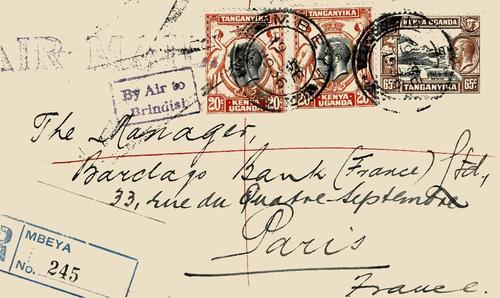 AIR MAIL
TANGANYIKA
20c KENYA UGANDA
TANGANYIKA
20c KENYA UGANDA
KENYA UGANDA
65c TANGANYIKA 65c
MBEYA
By Air to
Brindisi
The Manager,
Barclays Bank (France) Ltd.,
33, rue du Quatre-Septembre
Paris
France.
R
MBEYA
No. 245